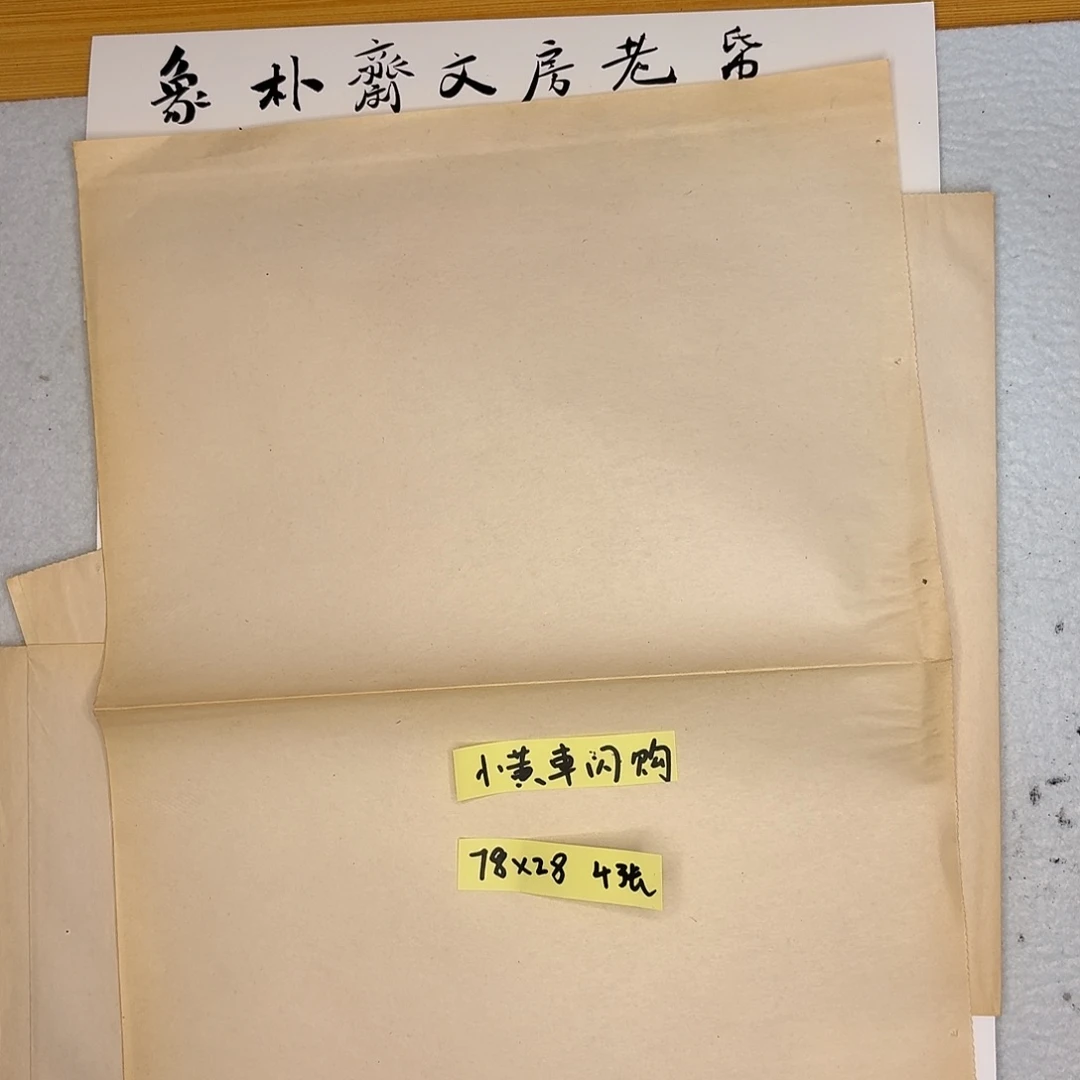 象朴齋文房老帋
小黄車闪购
78×28 4张